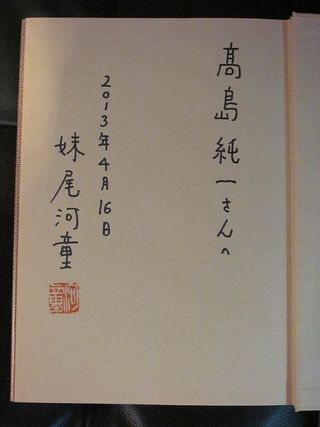 髙島純一さんへ
2013年4月16日
妹尾河童
河童